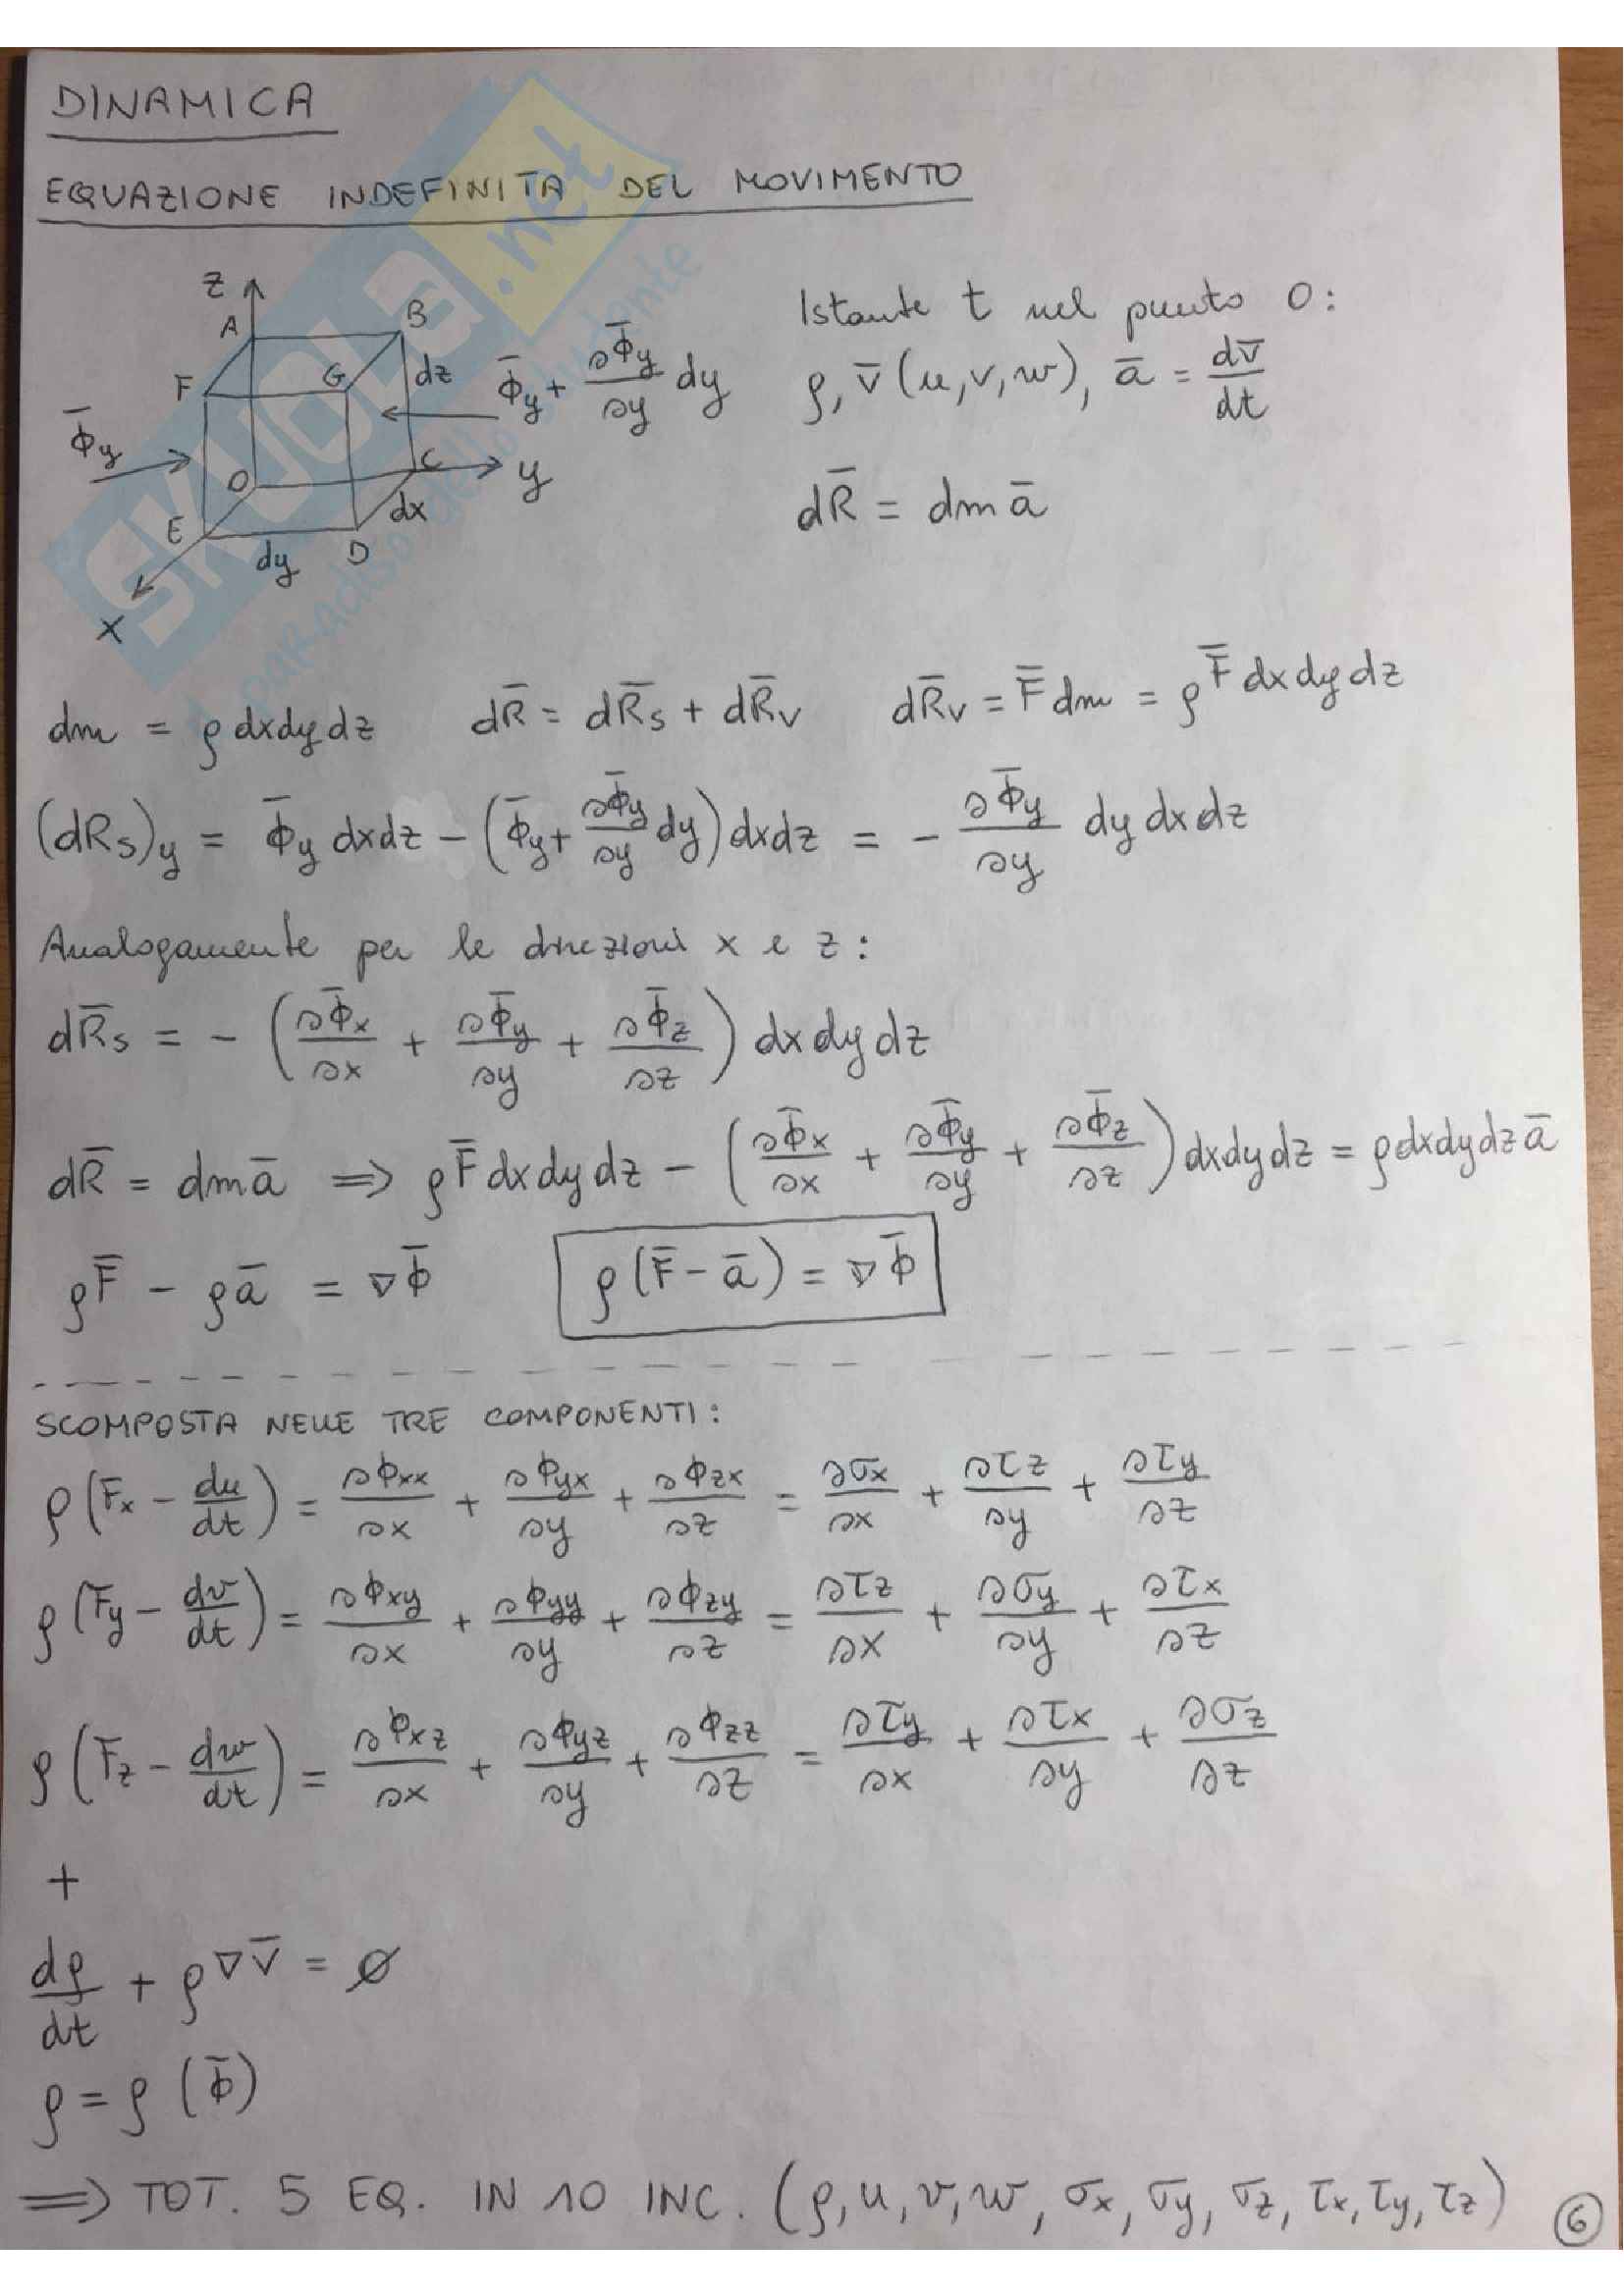 DINAMICA
EQUAZIONE INDEFINITA DEL MOVIMENTO
SKUOLA.net
il paradiso dello studente
z
A
B
F
G
dz
Φ̄y
Φ̄y + ∂Φ̄y/∂y dy
O
C
y
E
dy
D
dx
x
Istante t nel punto O:
ρ, v̄ (u, v, w), ā = dv̄/dt
dR̄ = dm ā
dm = ρ dx dy dz dR̄ = dR̄s + dR̄v dR̄v = F̄ dm = ρ F̄ dx dy dz
(dRs)y = Φ̄y dx dz - (Φ̄y + ∂Φ̄y/∂y dy) dx dz = - ∂Φ̄y/∂y dy dx dz
Analogamente per le direzioni x e z:
dR̄s = - (∂Φ̄x/∂x + ∂Φ̄y/∂y + ∂Φ̄z/∂z) dx dy dz
dR̄ = dm ā ⇒ ρ F̄ dx dy dz - (∂Φ̄x/∂x + ∂Φ̄y/∂y + ∂Φ̄z/∂z) dx dy dz = ρ dx dy dz ā
ρF̄ - ρā = ∇Φ̄ ρ(F̄ - ā) = ∇Φ̄
SCOMPOSTA NELLE TRE COMPONENTI:
ρ (Fx - du/dt) = ∂Φxx/∂x + ∂Φyx/∂y + ∂Φzx/∂z = ∂σx/∂x + ∂τz/∂y + ∂τy/∂z
ρ (Fy - dv/dt) = ∂Φxy/∂x + ∂Φyy/∂y + ∂Φzy/∂z = ∂τz/∂x + ∂σy/∂y + ∂τx/∂z
ρ (Fz - dw/dt) = ∂Φxz/∂x + ∂Φyz/∂y + ∂Φzz/∂z = ∂τy/∂x + ∂τx/∂y + ∂σz/∂z
+
dρ/dt + ρ∇V̄ = ∅
ρ = ρ (Φ̄)
⇒ TOT. 5 EQ. IN 10 INC. (ρ, u, v, w, σx, σy, σz, τx, τy, τz)
6